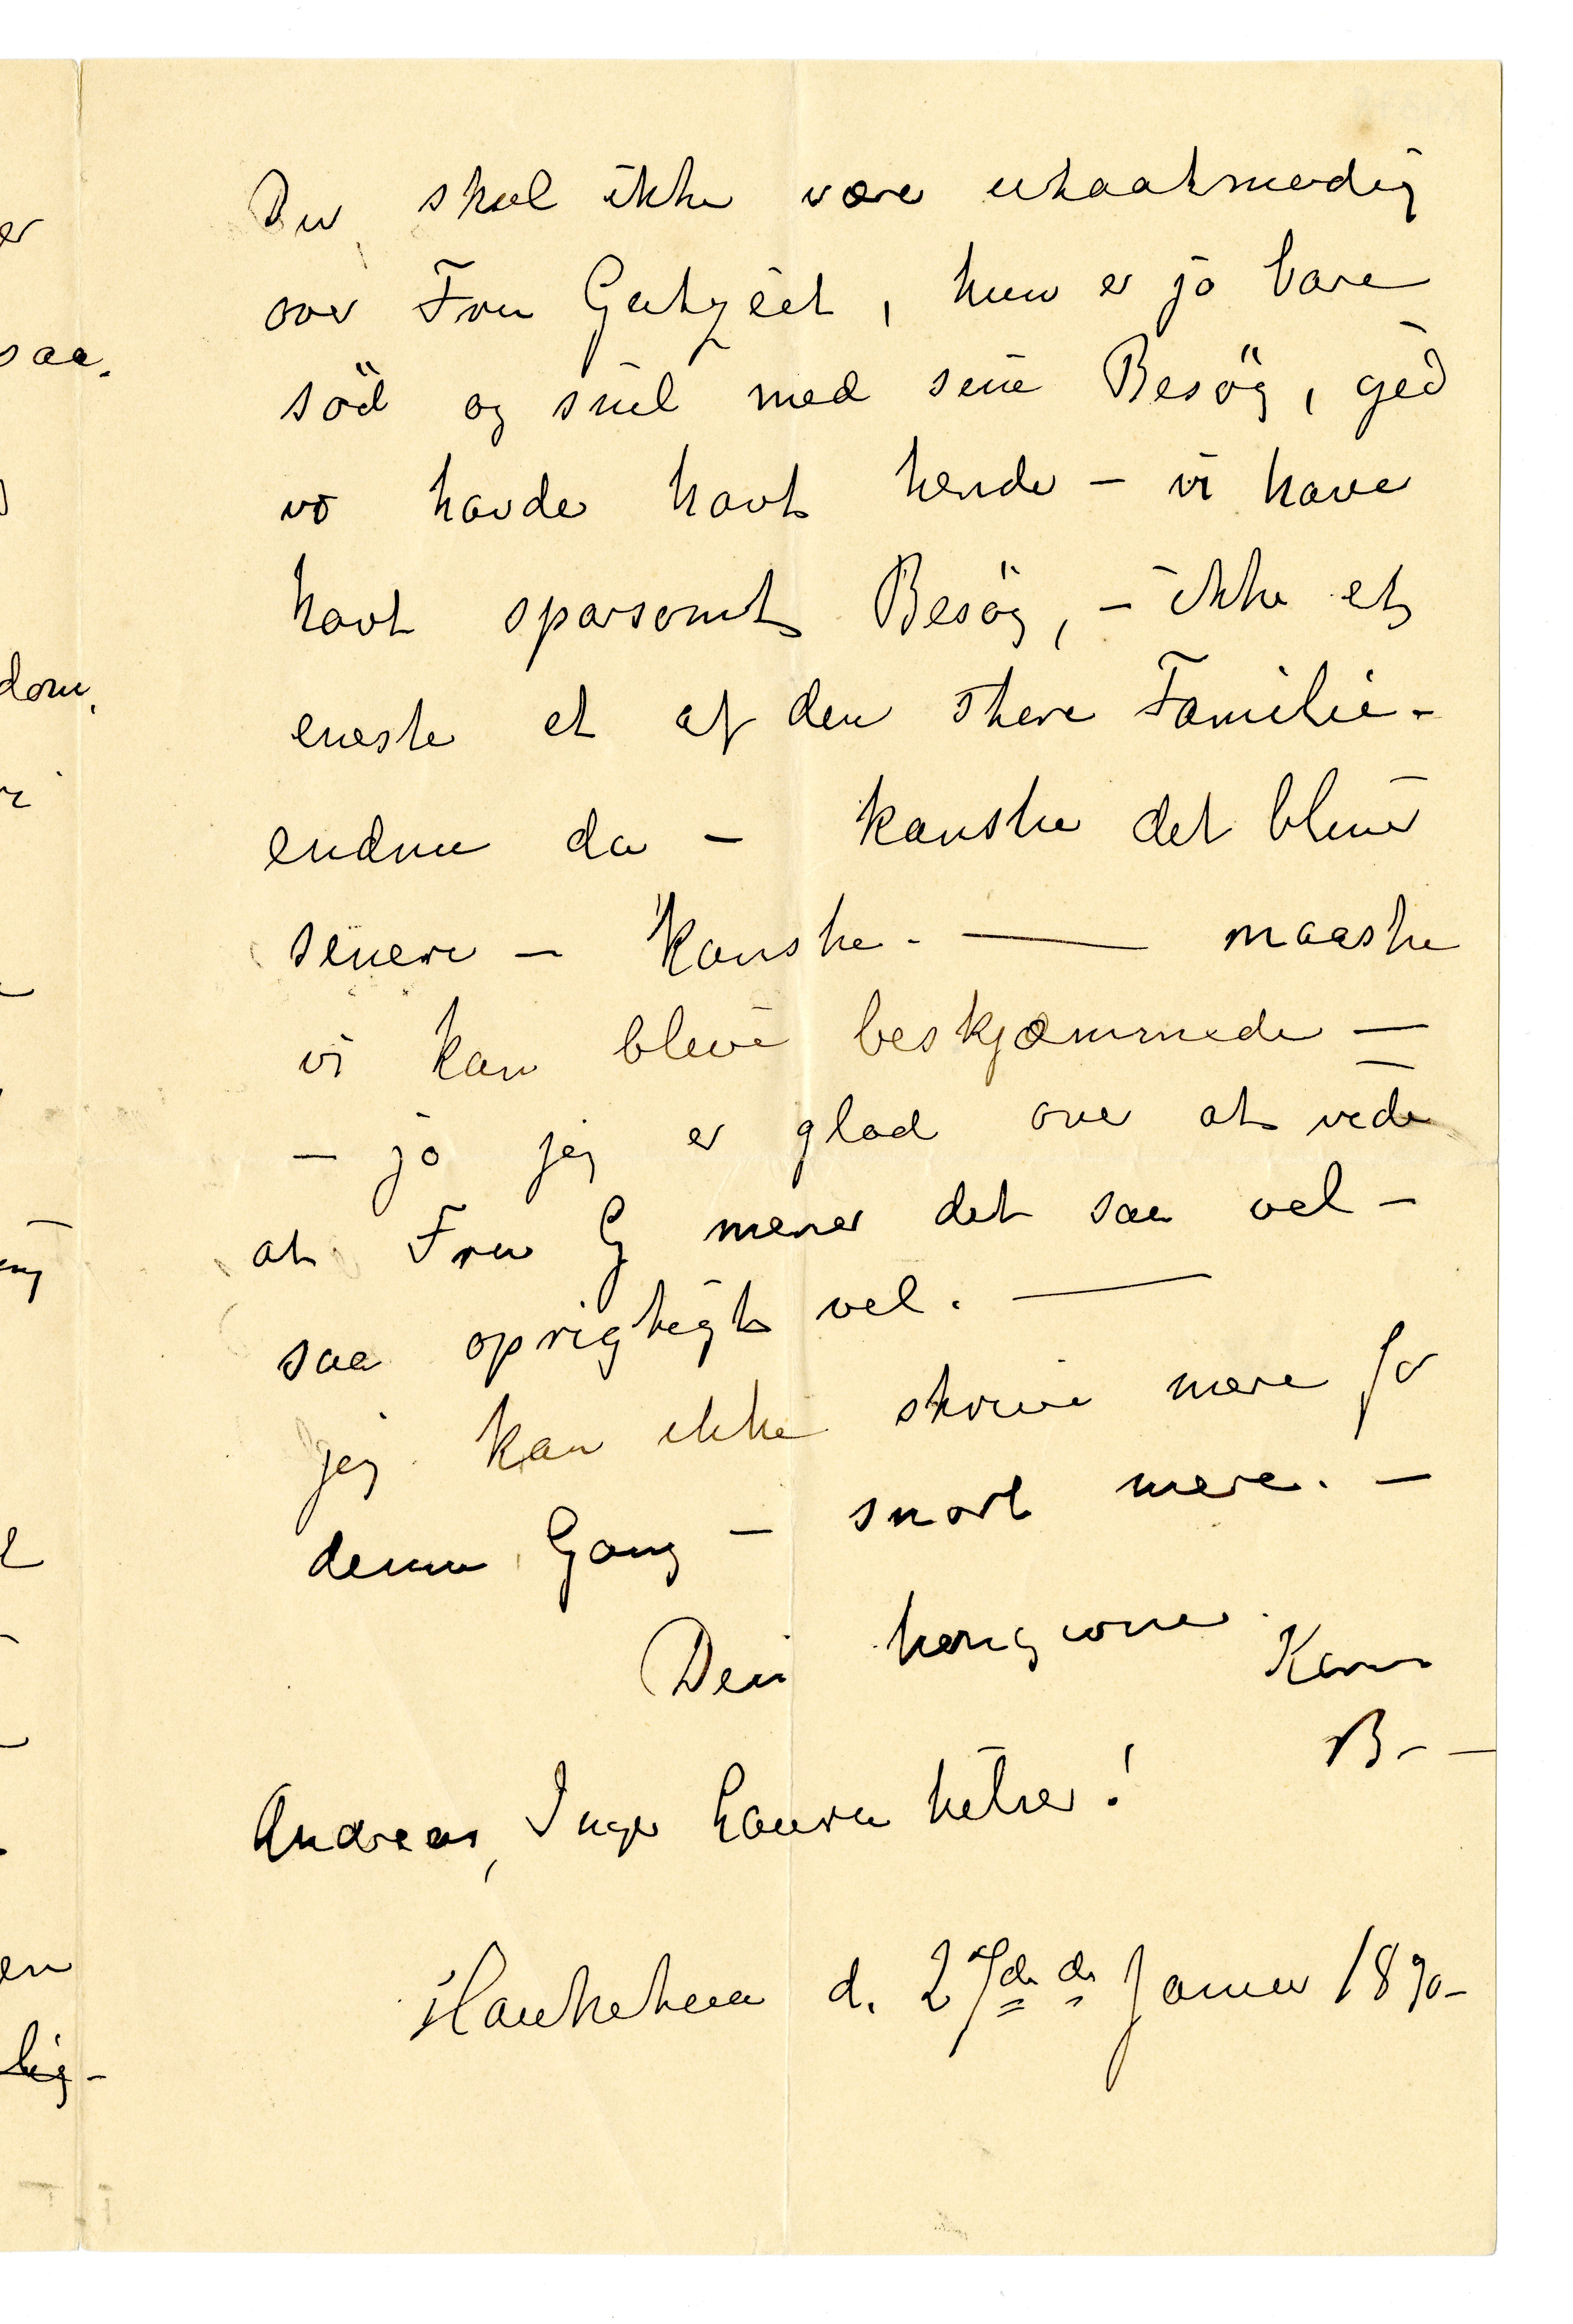 er
saa.
dom.
en
lig-
Du skal ikke være utaalmodig
over Fru Gutzeit, hun er jo bare
söd og snil med sine Besög, gid
vi havde havt hende – vi have
havt sparsomt Besög, – ikke et
eneste et af den störe Familie –
endnu da – kanske det bliver
senere – kanske. — maaske
vi kan blive beskjæmmede —
– jo jeg er glad over at vide
at Fru G mener det saa vel –
saa oprigtigt vel. —
jeg kan ikke skrive mere for
denne Gang – snart mere. –
Din hengivne Karen
B. –
Andreas, Inger Laura hilser!
Hauketuen d. 27de de Januar 1890 –